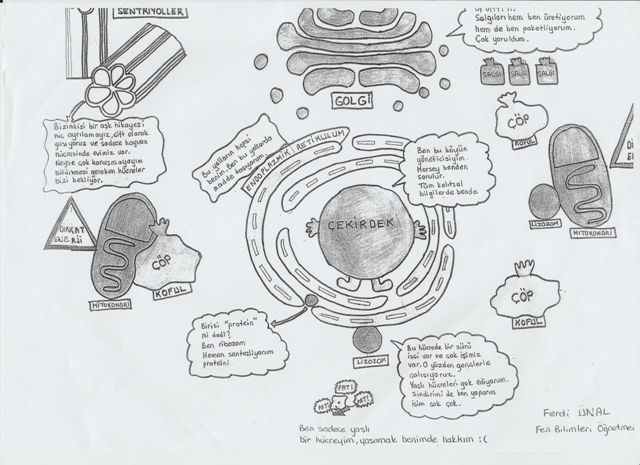 SENTRİYOLLER
Salgıları hem ben üretiyorum
hem de ben paketliyorum.
Çok yoruldum.
SALGI
SALGI
SALGI
GOLGİ
ÇÖP
KOFUL
Bizimkisi bir aşk hikayesi
hiç ayrılamayız, çift olarak
yaşıyoruz ve sadece hayvan
hücresinde evimiz var.
Neyse çok konuşmayayım
bölünmesi gereken hücreler
bizi bekliyor.
Bu yolların hepsi
benim. Ben bu yollarda
madde taşıyorum
ENDOPLAZMİK RETİKULUM
Ben bu köyün
yöneticisiyim.
Herşey benden
sorulur.
Tüm kalıtsal
bilgilerde bende
ÇEKİRDEK
LİZOZOM
MİTOKONDRİ
DİKKAT
ENERJİ
ÇÖP
KOFUL
MİTOKONDRİ
ÇÖP
KOFUL
Birisi "protein"
mi dedi?
Ben ribozom
Hemen sentezliyorum
proteini.
LİZOZOM
Bu hücrede bir sürü
işçi var ve çok işimiz
var. O yüzden gençlerle
çalışıyoruz.
Yaşlı hücreleri yok ediyorum.
Sindirimi de ben yaparım
işim çok çok.
PAT!
PAT!
PAT!
Ben sadece yaşlı
bir hücreyim, yaşamak benimde hakkım :(
Ferdi ÜNAL
Fen Bilimleri Öğretmei